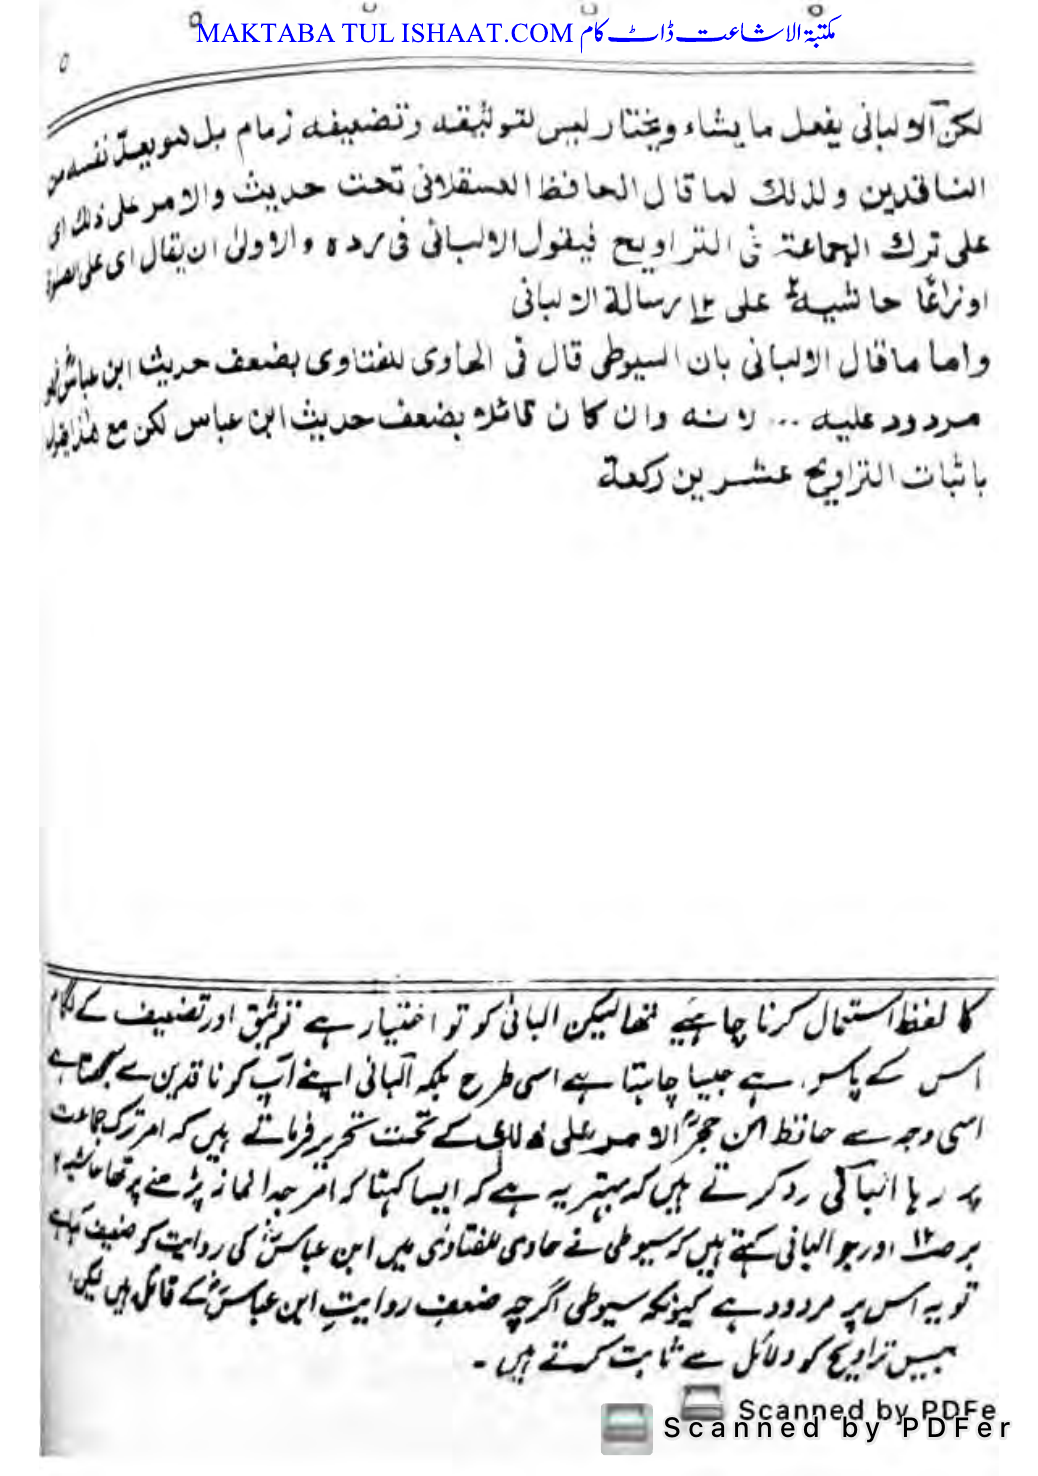 MAKTABA TUL ISHAAT.COM مکتبۃ الاشاعت ڈاٹ کام
لكن الالبانى يفعل ما يشاء ويختار ليس لتوثيقه وتضعيفه زمام بل هو يعد نفسه من
الناقدين ولذلك لما قال الحافظ العسقلانى تحت حديث والامر على ذلك اى
على ترك الجماعة فى التراويح فيقول الالبانى فى رده والاولىٰ ان يقال اى على الصلوة
اوزاعًا حاشيه ٢ على ١٢ رسالة الالبانى
واما ما قال الالبانى بان السيوطى قال فى الحاوى للفتاوى بضعف حديث ابن عباسؓ فهو
مردود عليه ... لانه وان كان قائلا بضعف حديث ابن عباس لكن مع هذا يقول
باثبات التراويح عشرين ركعة
کا لفظ استعمال کرنا چاہئیے تھا لیکن البانی کو تو اختیار ہے توثیق اور تضعیف کے لگام
اس کے پاس ہے جیسا چاہتا ہے اسی طرح بلکہ البانی اپنے آپ کو ناقدین سے سمجھتا ہے
اسی وجہ سے حافظ ابن حجرؒ الامر علی ذلک کے تحت تحریر فرماتے ہیں کہ امر ترک جماعت
پر رہا البانی رد کرتے ہیں کہ بہتر یہ ہے کہ ایسا کہتا کہ امر جدا نماز پڑھنے پر تھا حاشیہ ۲
بر صـ۱۲ اور جو البانی کہتے ہیں کہ سیوطی نے حاوی للفتاوٰی میں ابن عباسؓ کی روایت کو ضعیف کہا ہے
تو یہ اس پر مردود ہے کیونکہ سیوطی اگرچہ ضعفِ روایتِ ابن عباسؓ کے قائل ہیں لیکن
بیس تراویح کو دلائل سے ثابت کرتے ہیں ۔
Scanned by PDFe
Scanned by PDFer